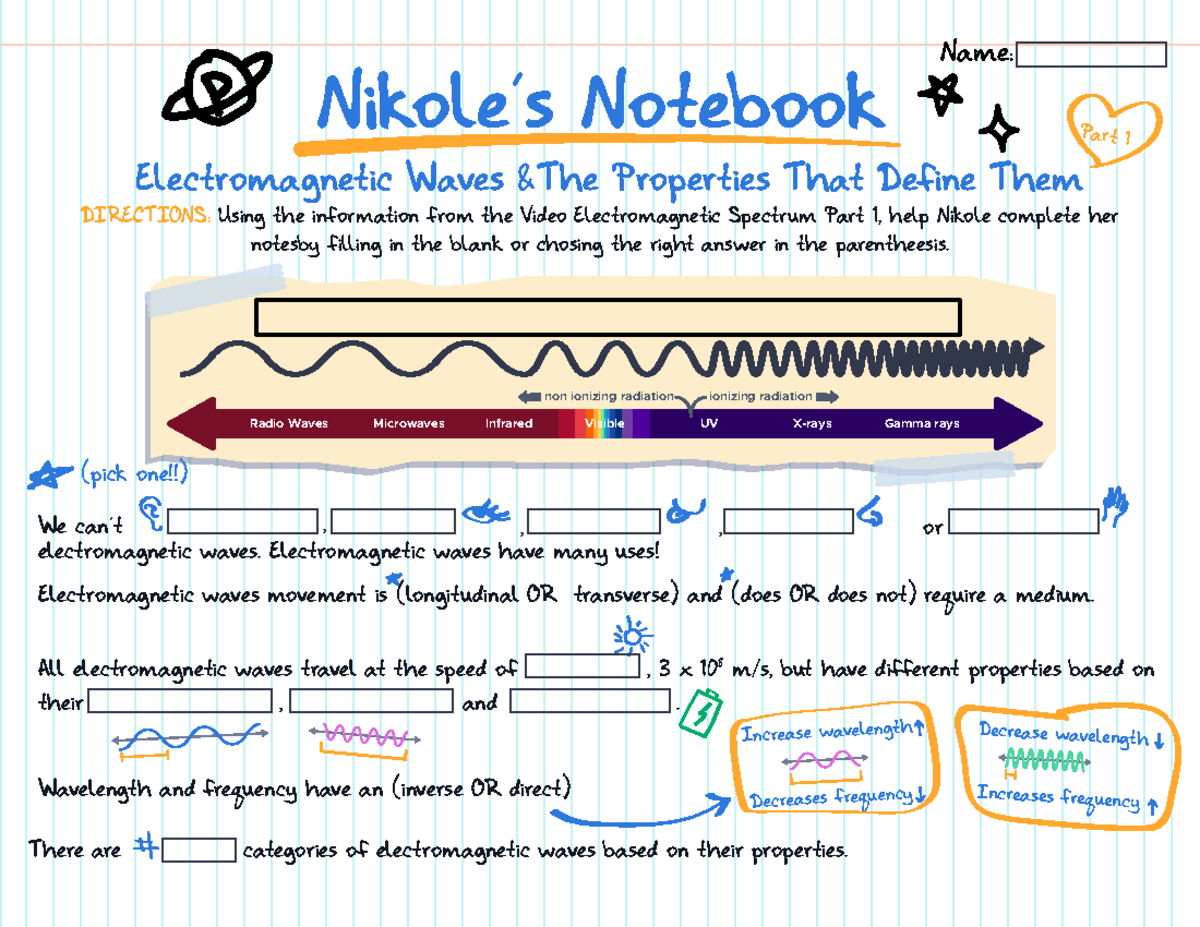 Name:
Nikole's Notebook
Part 1
Electromagnetic Waves & The Properties That Define Them
DIRECTIONS: Using the information from the Video Electromagnetic Spectrum Part 1, help Nikole complete her
notesby filling in the blank or chosing the right answer in the parentheesis.
non ionizing radiation ionizing radiation
Radio Waves Microwaves Infrared Visible UV X-rays Gamma rays
(pick one!!)
We can't , , , or
electromagnetic waves. Electromagnetic waves have many uses!
Electromagnetic waves movement is (longitudinal OR transverse) and (does OR does not) require a medium.
All electromagnetic waves travel at the speed of , 3 x 10⁸ m/s, but have different properties based on
their , and .
Increase wavelength↑
Decreases frequency↓
Decrease wavelength ↓
Increases frequency ↑
Wavelength and frequency have an (inverse OR direct)
There are # categories of electromagnetic waves based on their properties.